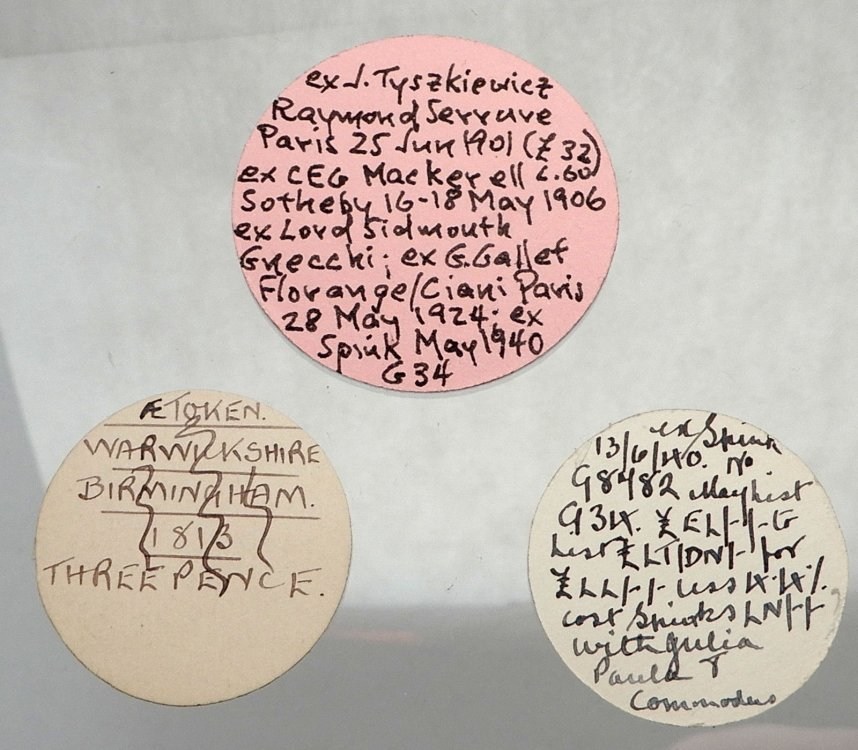 ex J. Tyszkiewicz
Raymond Serrure
Paris 25 Jun 1901 (£32)
ex CEG Mackerell L.60
Sotheby 16-18 May 1906
ex Lord Sidmouth
Gnecchi; ex G. Gallet
Florange/Ciani Paris
28 May 1924; ex
Spink May 1940
G34
Æ TOKEN.
WARWICKSHIRE
BIRMINGHAM.
1813
THREE PENCE.
ex Spink
13/6/40. No
G8482 May list
for
less
cost Spinks
with Julia
Paula T
Commodus